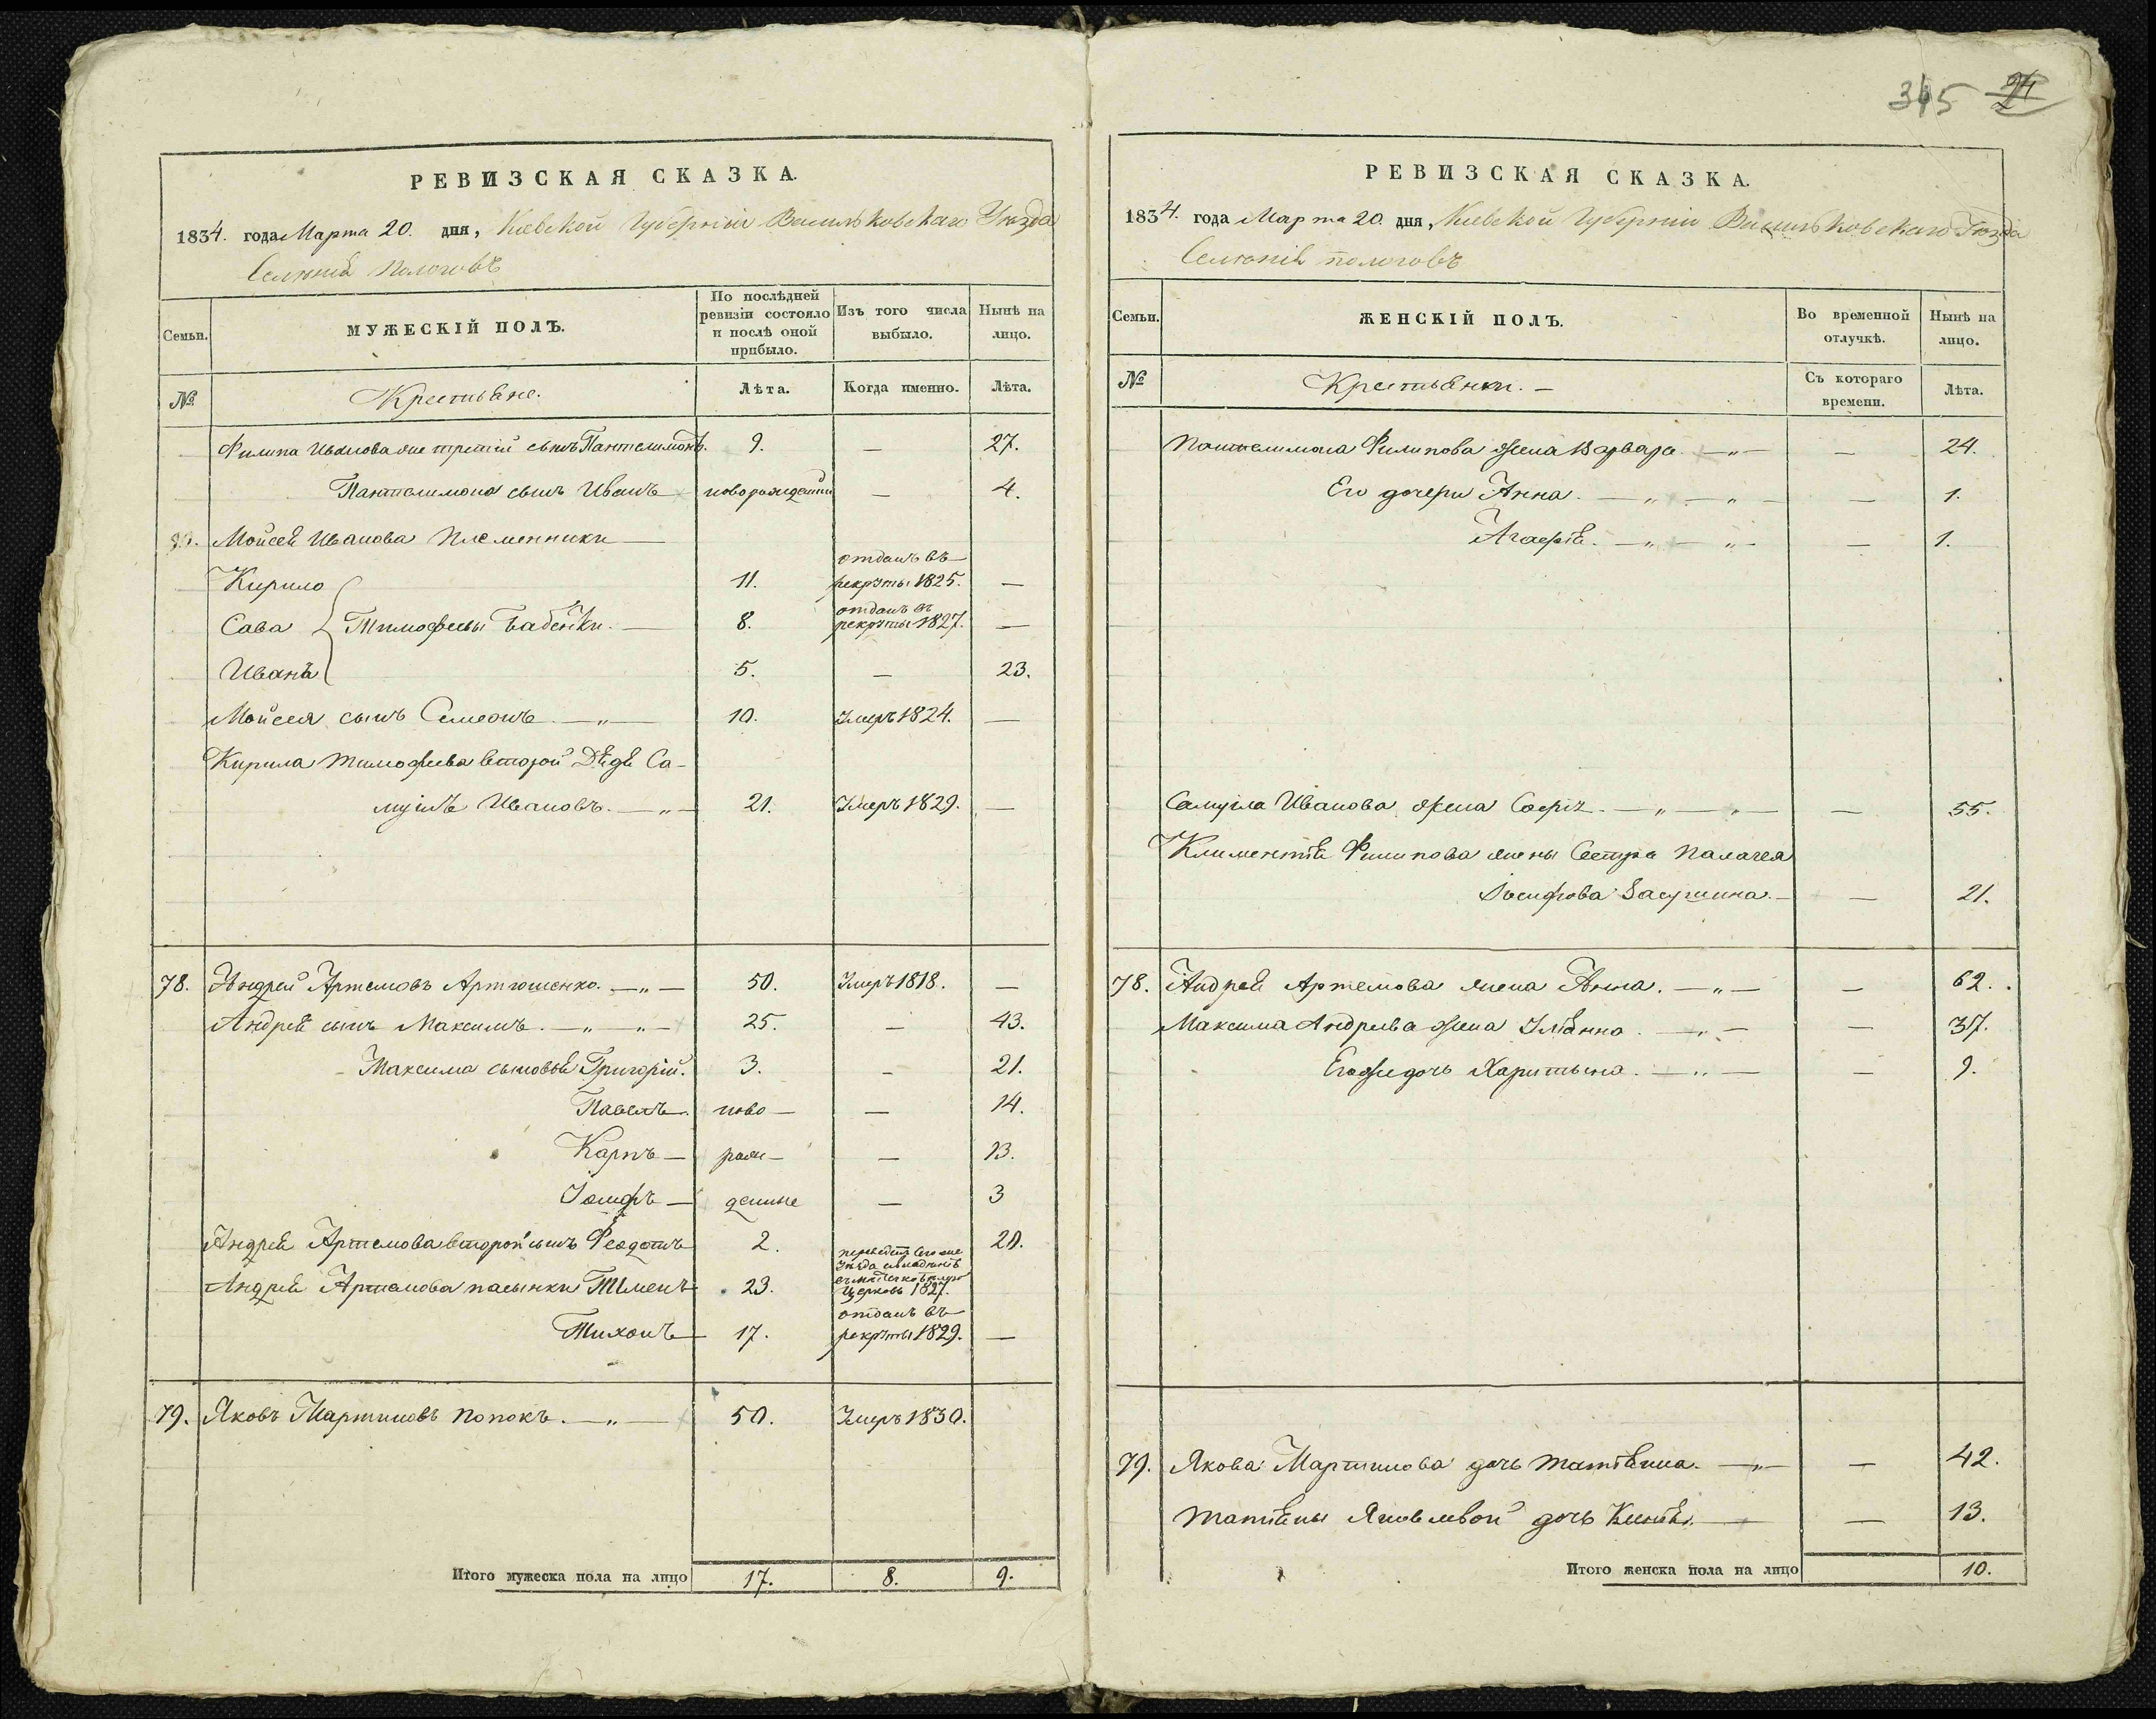 345 24
РЕВИЗСКАЯ СКАЗКА.
1834. года Марта 20. дня, Киевской Губерніи Васильковскаго Уѣзда
Селенія Пологовъ
Семьи.
МУЖЕСКІЙ ПОЛЪ.
По послѣдней ревизіи состояло и послѣ оной прибыло.
Изъ того числа выбыло.
Нынѣ на лицо.
№
Крестьяне.
Лѣта.
Когда именно.
Лѣта.
Филипа Иванова же третій сынъ Пантелимонъ. 9. — 27.
Пантелимона сынъ Иванъ новорожденный — 4.
Мойсея Иванова Племенники —
Кирило 11. отданъ въ рекруты 1825. —
Сава Тимофеевы Бабенки. — 8. отданъ въ рекруты 1827. —
Иванъ 5. — 23.
Мойсея сынъ Семеонъ. — „ — 10. Умеръ 1824. —
Кирила Тимофеева второй Дядя Са-
муилъ Ивановъ. — „ — 21. Умеръ 1829. —
78. Андрей Артемовъ Артюшенко. — „ — 50. Умеръ 1818. —
Андрея сынъ Максимъ. — „ — „ — 25. — 43.
Максима сыновья Григорій. 3. — 21.
Павелъ. ново — — 14.
Карпъ — рож — — 13.
Іосифъ — денные — 3
Андрея Артемова второй сынъ Феодотъ 2. — 20.
Андрея Артемова пасынки 23. Церковь 1827.
Тихонъ — 17. отданъ въ рекруты 1829. —
79. Яковъ Мартиновъ Попокъ. — „ — 50. Умеръ 1830.
Итого мужеска пола на лицо 17. 8. 9.
РЕВИЗСКАЯ СКАЗКА.
1834. года Марта 20. дня, Киевской Губерніи Васильковскаго Уѣзда
Селенія Пологовъ
Семьи.
ЖЕНСКІЙ ПОЛЪ.
Во временной отлучкѣ.
Нынѣ на лицо.
№
Крестьянки. —
Съ котораго времени.
Лѣта.
Пантелимона Филипова жена Варвара. — „ — — 24.
Его дочери Анна. — „ — „ — — 1.
Агафія. — „ — „ — — 1.
Самуила Иванова жена Софія. — „ — „ — — 55.
Климентія Филипова жены Сестра Палагея
Іосифова — 21.
78. Андрея Артемова жена Анна. — „ — — 62.
Максима Андреева жена Уліянна. — „ — — 37.
Его же дочь Харитына. — „ — — 9.
79. Якова Мартинова дочь Татіяна. — „ — — 42.
Татіяны Яковлевой дочь — — 13.
Итого женска пола на лицо 10.